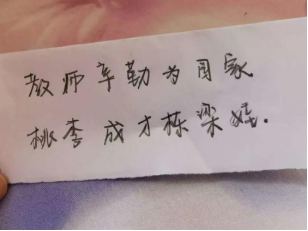 教师辛勤为国家
桃李成才栋梁